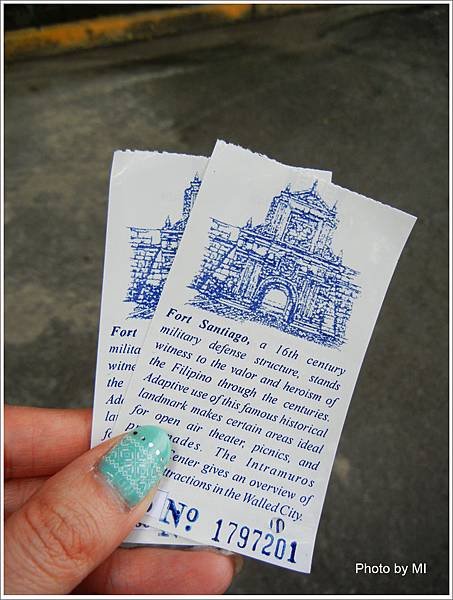 Fort Santiago, a 16th century
military defense structure, stands
witness to the valor and heroism of
the Filipino through the centuries.
Adaptive use of this famous historical
landmark makes certain areas ideal
for open air theater, picnics, and
The Intramuros
enter gives an overview of
in the Walled City.
Nº 1797201
Fort
milita
witne
the
Photo by MI